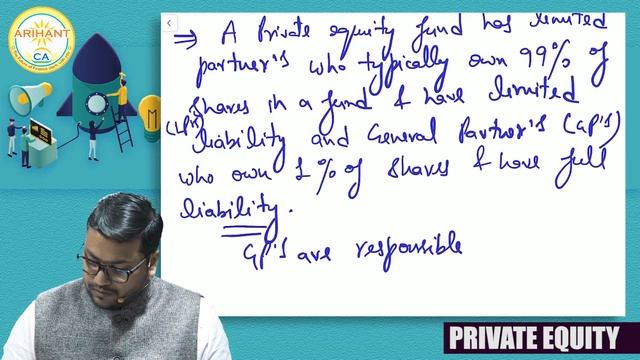 ARIHANT
CA
⇒ A Private equity fund has limited
partner's who typically own 99% of
shares in a fund & have limited
(LP's) liability and General Partner's (GP's)
who own 1% of shares & have full
liability.
GP's are responsible
PRIVATE EQUITY